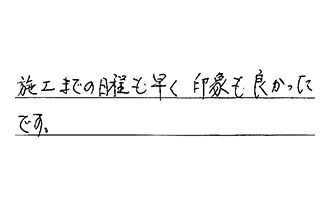 施工までの日程も早く 印象も良かった
です。